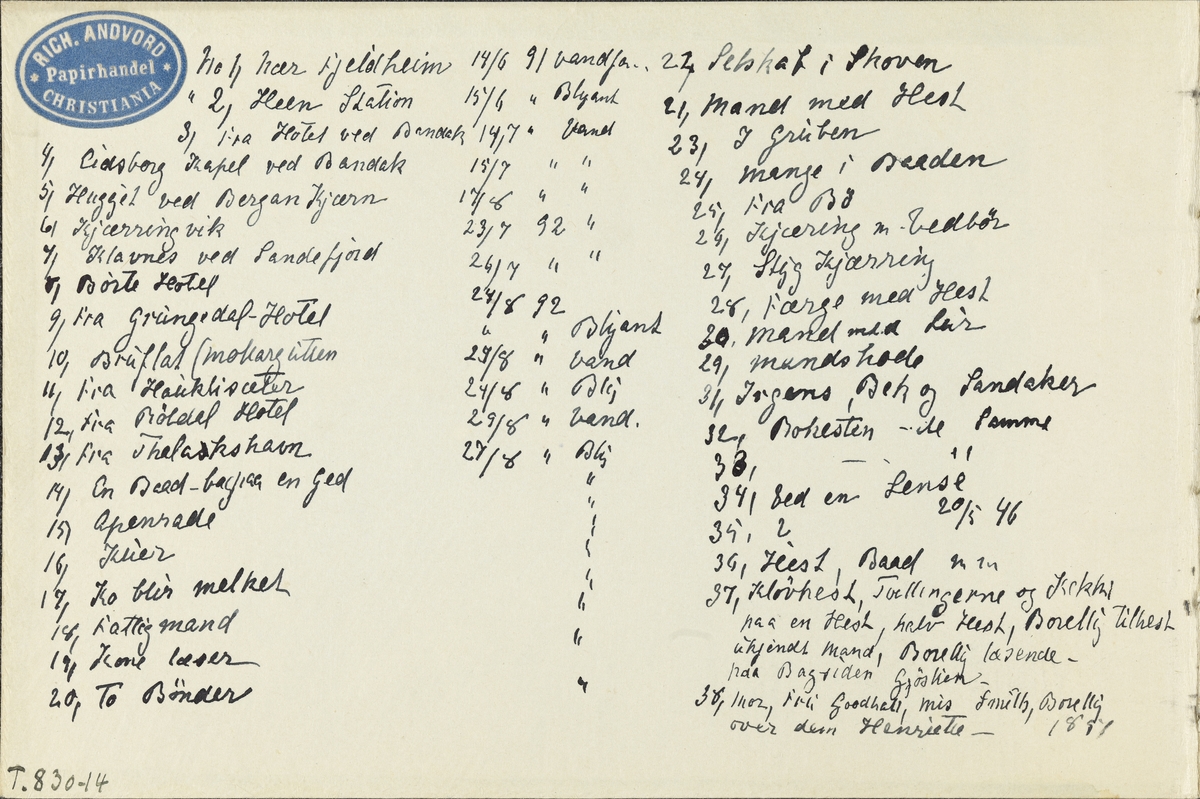 RICH. ANDVORD
Papirhandel
CHRISTIANIA
No 1, nær Fjeldheim 14/6 91 vandfa..
" 2, Heen Station 15/6 " Blyant
3, Fra Hotel ved Bandak 14/7 " Vand
4, Eidsborg Kapel ved Bandak 15/7 " "
5, Hugget ved Bergan Kjærn 17/8 " "
6, Kjærringvik 23/7 92 "
7, Klavnes ved Sandefjord 26/7 " "
8, Børte Hotel 27/8 92
9, Fra Grungedal-Hotel " " Blyant
10, Bruflat 27/8 " vand
11, Fra Haukliseter 24/8 " Bly
12, Fra Röldal Hotel 29/8 " Vand.
13, Fra Thelaskshavn 27/8 " Bly
14, En Baad-bagpaa en Ged "
15, Apenrade "
16, Kuer "
17, Ko blir melket "
18, Fattig mand "
19, Kone læser "
20, To Bönder "
22, Selskab i Skoven
21, Mand med Hest
23, I Gruben
24, mange i Baaden
25, Fra Bö
26, Kjæring m. Vedbör
27, Styg Kjærring
28, Færge med Hest
30, Mand med Lur
29, mandshode
31, Irgens, Bek og Sandaker
32, Bokesten -ile Samme
33, — "
34, Ved en Lense
20/5 46
35, 2
36, Hest, Baad m m
37, Klövhest, Tvillingerne og Kikki
paa en Hest, halv Hest, Borellÿ tilhest
ukjendt Mand, Borellÿ læsende -
paa Bagsiden Gjöstien -
38, Mor, Frü Goodhall, mis Smith, Borelly
over dem Henriette - 1891
T.830-14